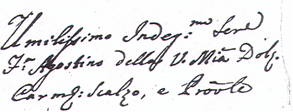 Umilissimo Indeg:mo Serv
Fr. Agostino della V. Mia Dolf.
Carmo: Scalzo, e Prõvle